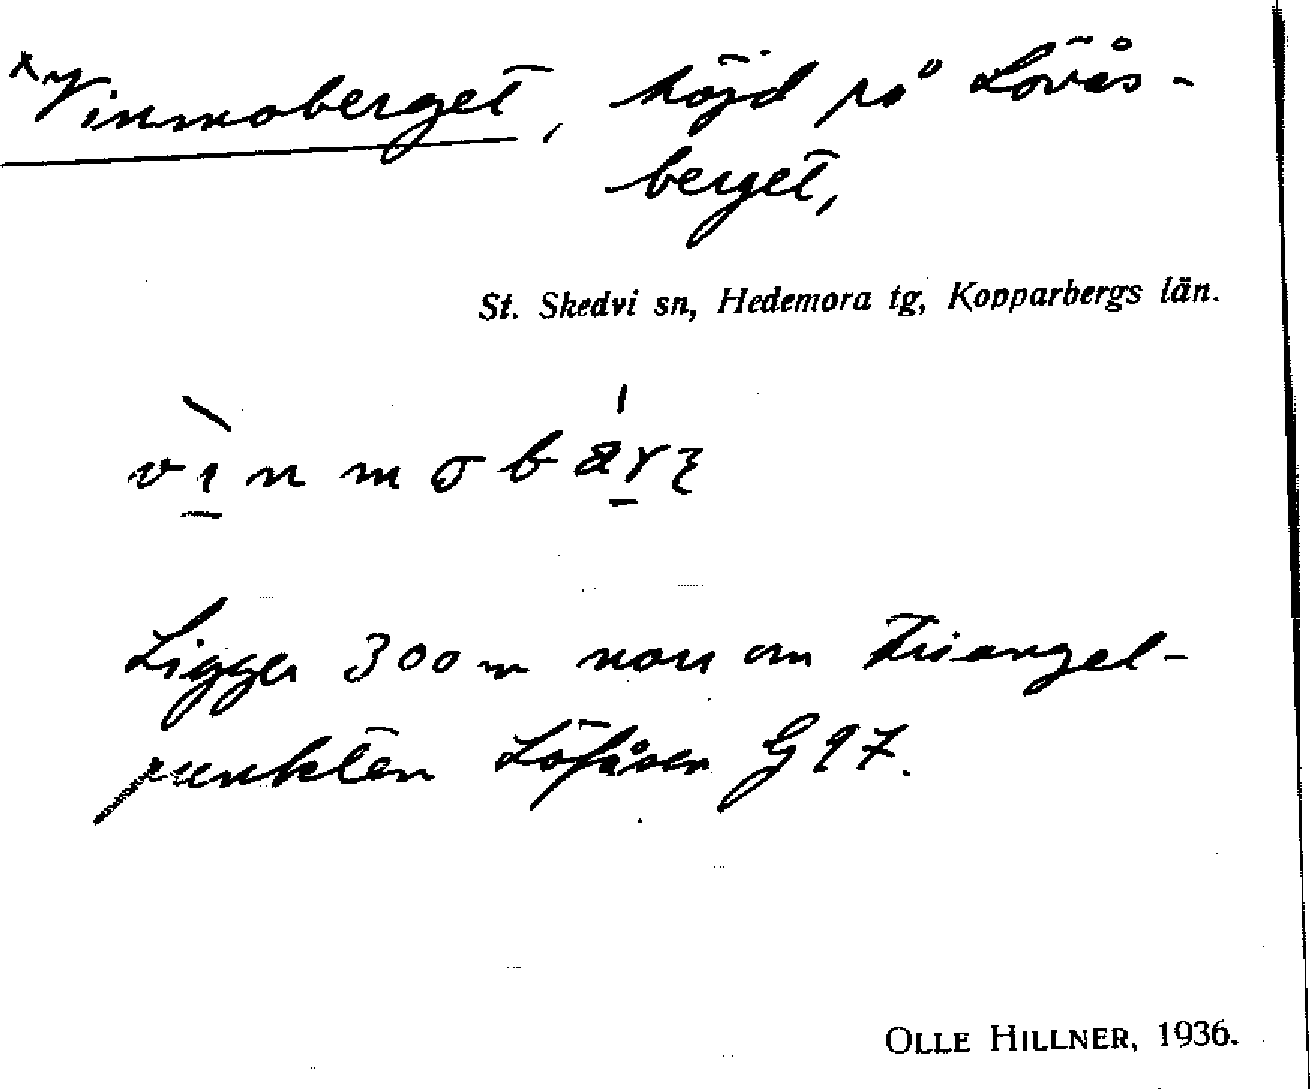 x Vinmoberget, höjd på Lövås-
berget,
St. Skedvi sn, Hedemora tg, Kopparbergs län.
Ligger 300 m norr om triangel-
punkten Löfåsen G 97.
OLLE HILLNER, 1936.